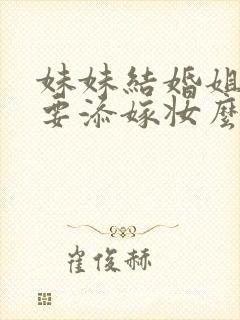 妹妹結婚姐
要添嫁妝麼
崔俊赫